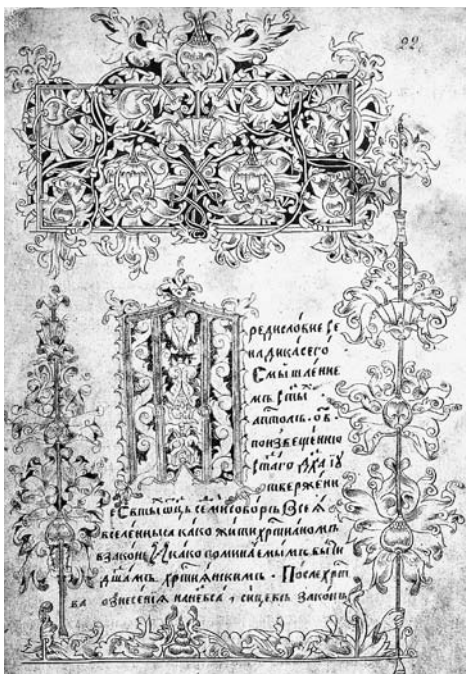 22
Предисловие се
надика сего
Смышление
мъ стыⷯ
апⷭтолъ. ов
по извещению
стаго дх҃а і у
твержени
е Ст҃ыⷯ ѻц҃ъ семи соборъ Всея
вселенныѧ како жити хрⷭтианомъ
в законе И како поминаемымъ быти
дш҃амъ хрⷭтиянскимъ. После хрⷭт
ва ознесения на нб҃са, сицевъ законъ